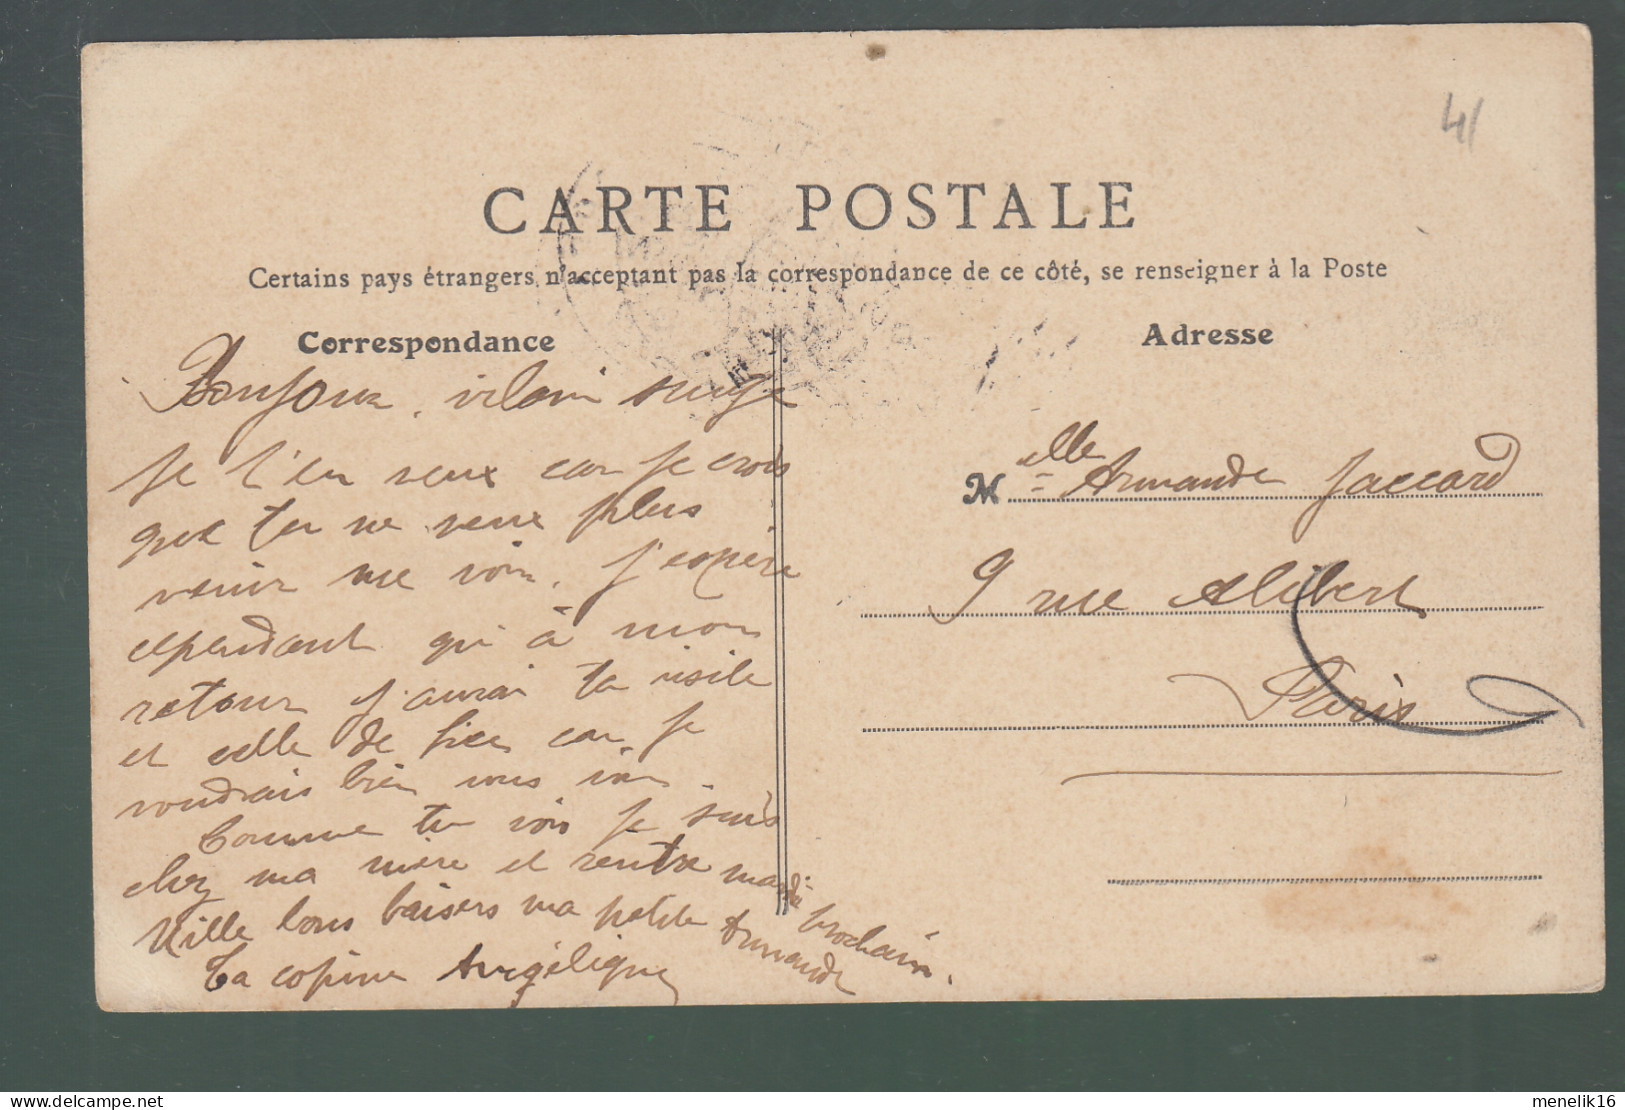 41
CARTE POSTALE
Certains pays étrangers n'acceptent pas la correspondance de ce côté, se renseigner à la Poste
Correspondance
Bonjour, vilain singe
je t'en veux car je crois
que tu ne veux plus
venir me voir. J'espère
cependant qu'à mon
retour j'aurai ta visite
et celle de car je
voudrais bien vous voir.
Comme tu vois je suis
chez ma mère et rentre mardi prochain.
Mille bons baisers ma petite Armande
Ta copine Angélique
Adresse
Melle Armande Jaccard
9 rue Alibert
Paris
menelik16
delcampe.net